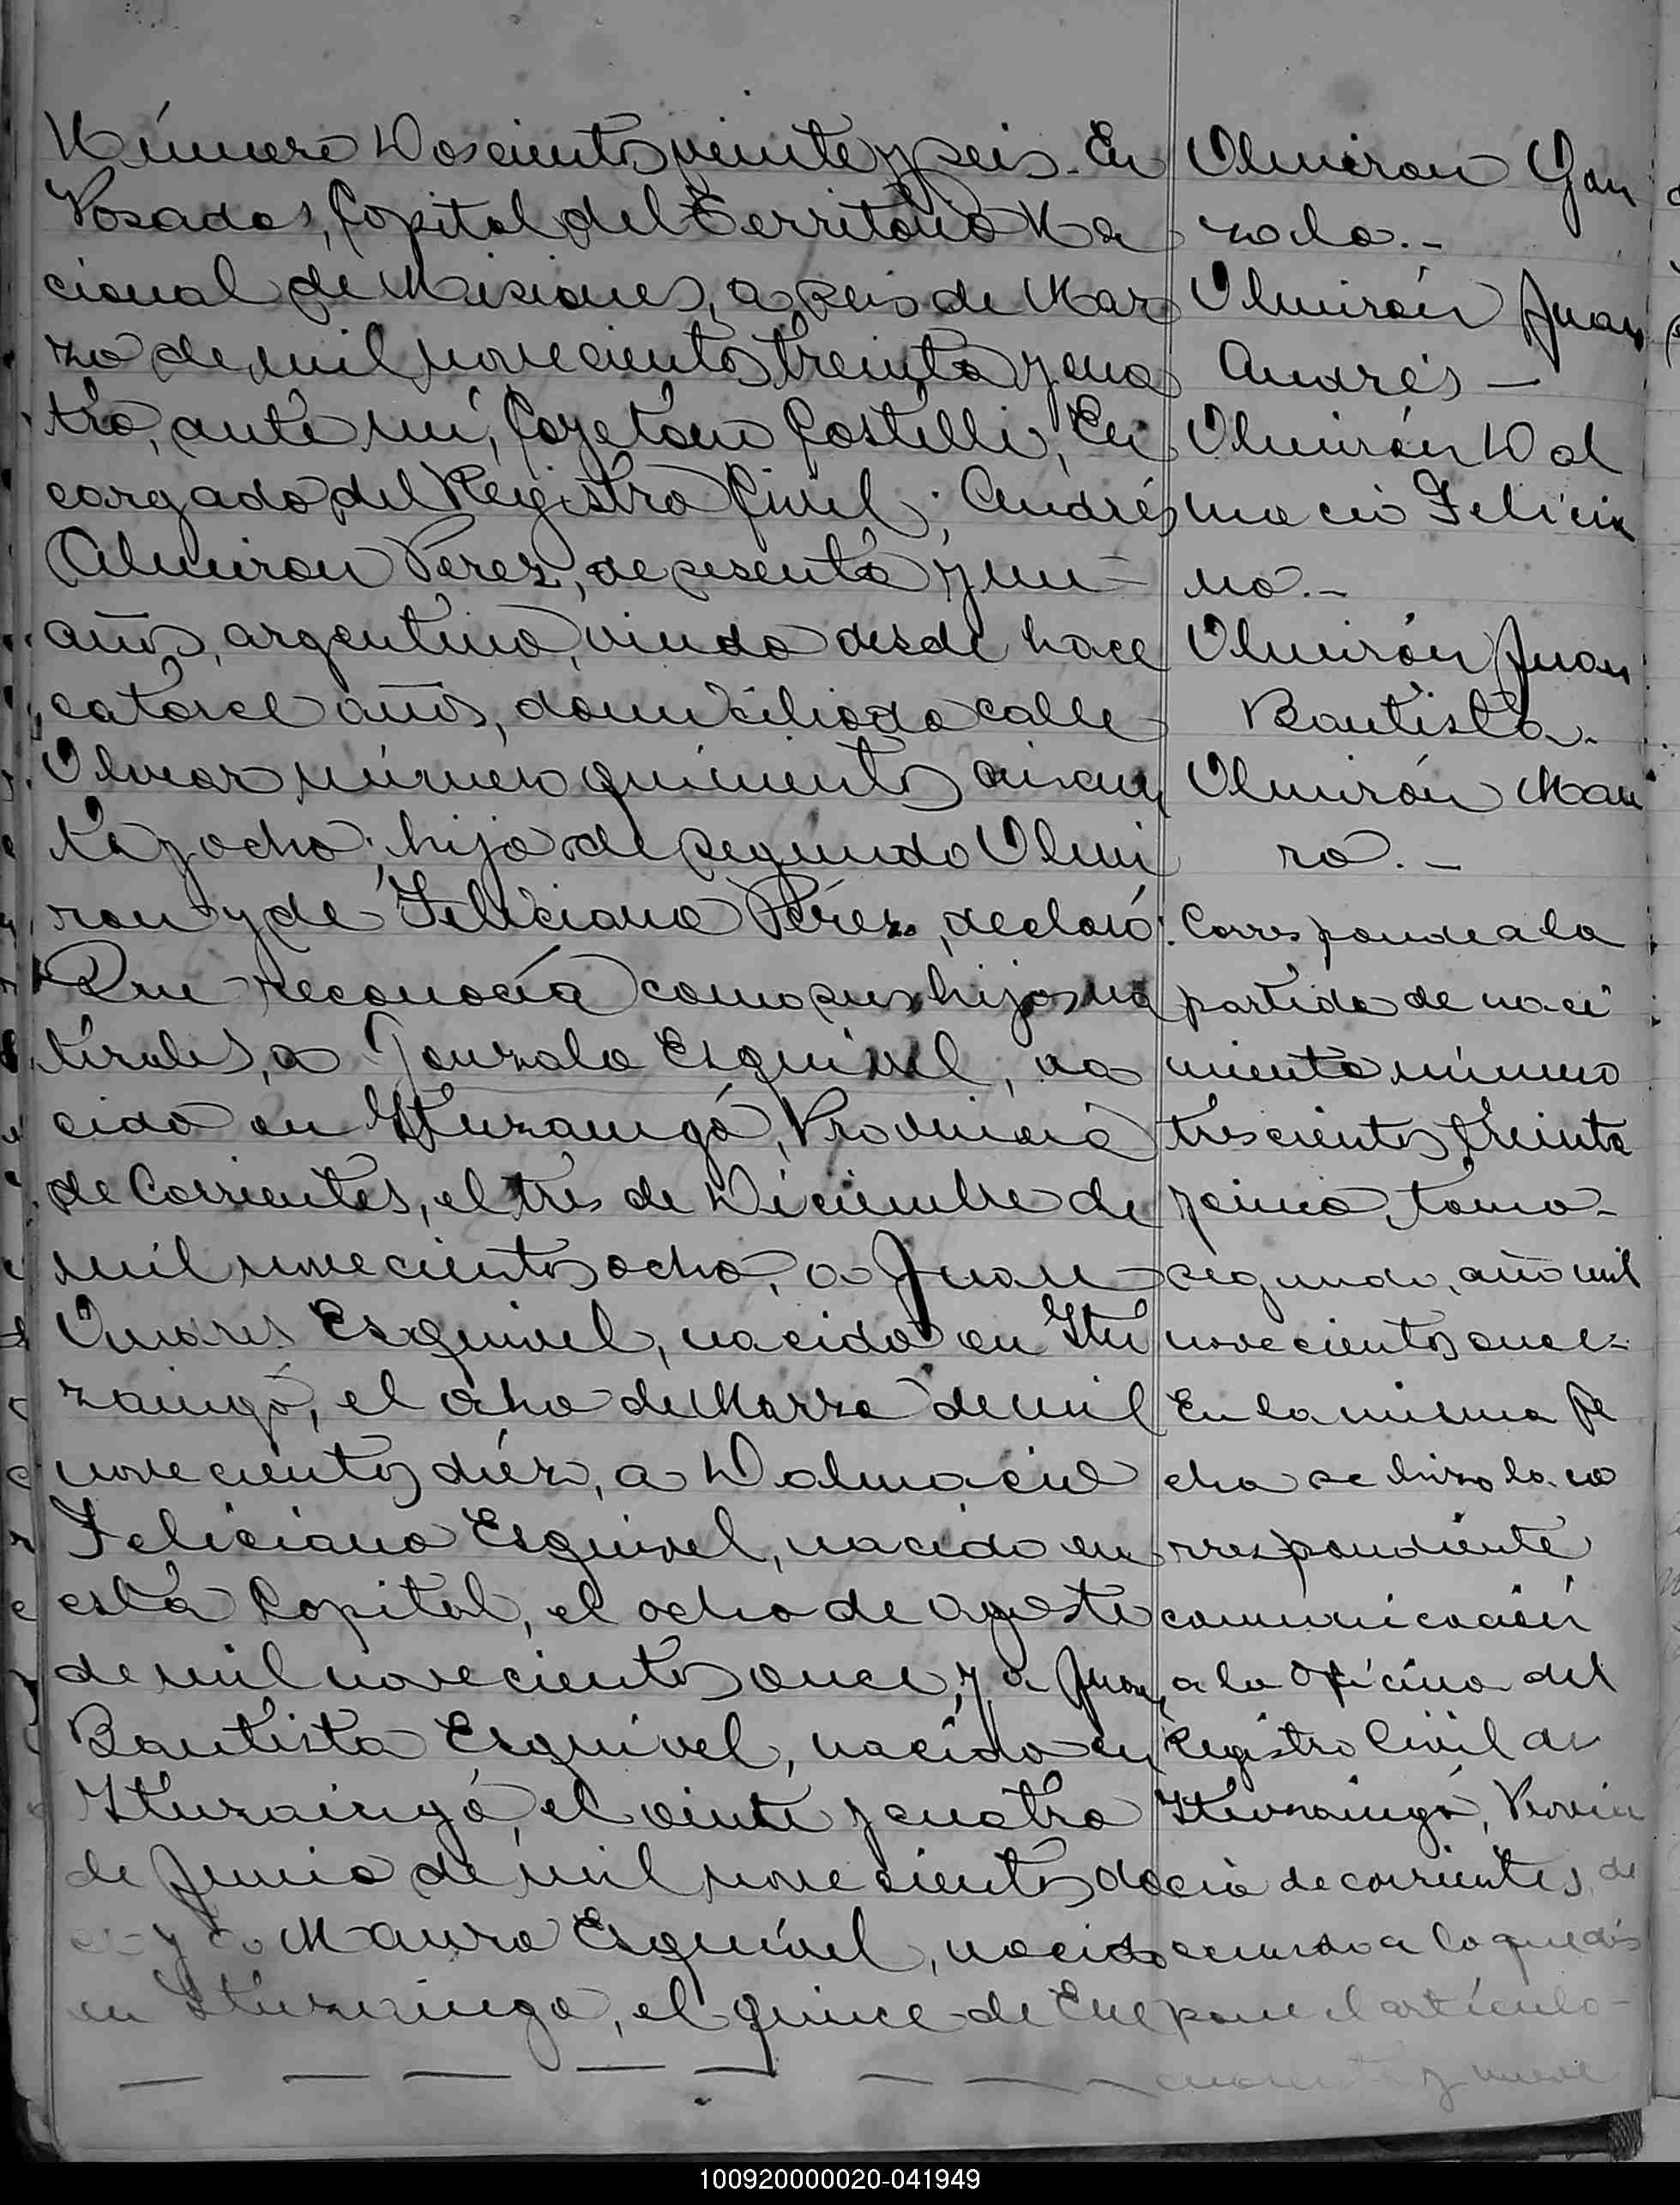 Número Doscientos veinte y seis. En
Posadas, Capital del Territorio Na
cional de Misiones, a seis de Mar
zo de mil novecientos treinta y cua
tro, ante mí, Cayetano Castelli, En
cargado del Registro Civil; Andrés
Almiron Perez, de sesenta y un -
años, argentino, viudo desde hace
catorce años, domiciliado calle
Alvear número quinientos cincuen
ta y ocho; hijo de Segundo Almi
ron y de Feliciana Pérez, declaró:
Que reconocía como sus hijos na
turales, a Gonzalo Esquivel, na
cido en Ituzaingó, Provincia
de Corrientes, el tres de Diciembre de
mil novecientos ocho, a Juan
Andrés Esquivel, nacido en Itu
zaingó, el ocho de Marzo de mil
novecientos diéz, a Dalmacio
Feliciano Esquivel, nacido en
esta Capital, el ocho de agosto
de mil novecientos once, y a Juan
Bautista Esquivel, nacido en
Ituzaingó, el veinte y cuatro
de Junio de mil novecientos do
y a Mauro Esquivel, nacido
en Ituzaingo, el quince de Ene
Almiron Gon
zalo.-
Almirón Juan
Andrés -
Almirón Dal
macio Felicia
no.-
Almirón Juan
Bautista.
Almirón Mau
ro.-
Corresponde a la
partida de naci
miento número
trescientos treinta
y cinco, tomo -
segundo, año mil
novecientos once.-
En la misma fe
cha se hizo la co
rrespondiente
comunicación
a la Oficina del
Registro Civil de
Ituzaingó, Provin
cia de Corrientes, de
acuerdo a lo que dis
pone el artículo -
y nueve
100920000020-041949